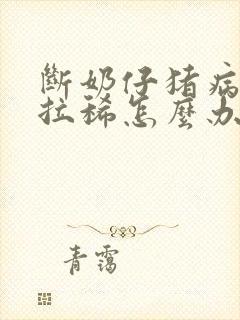 斷奶仔猪病
拉稀怎麼办
青霭